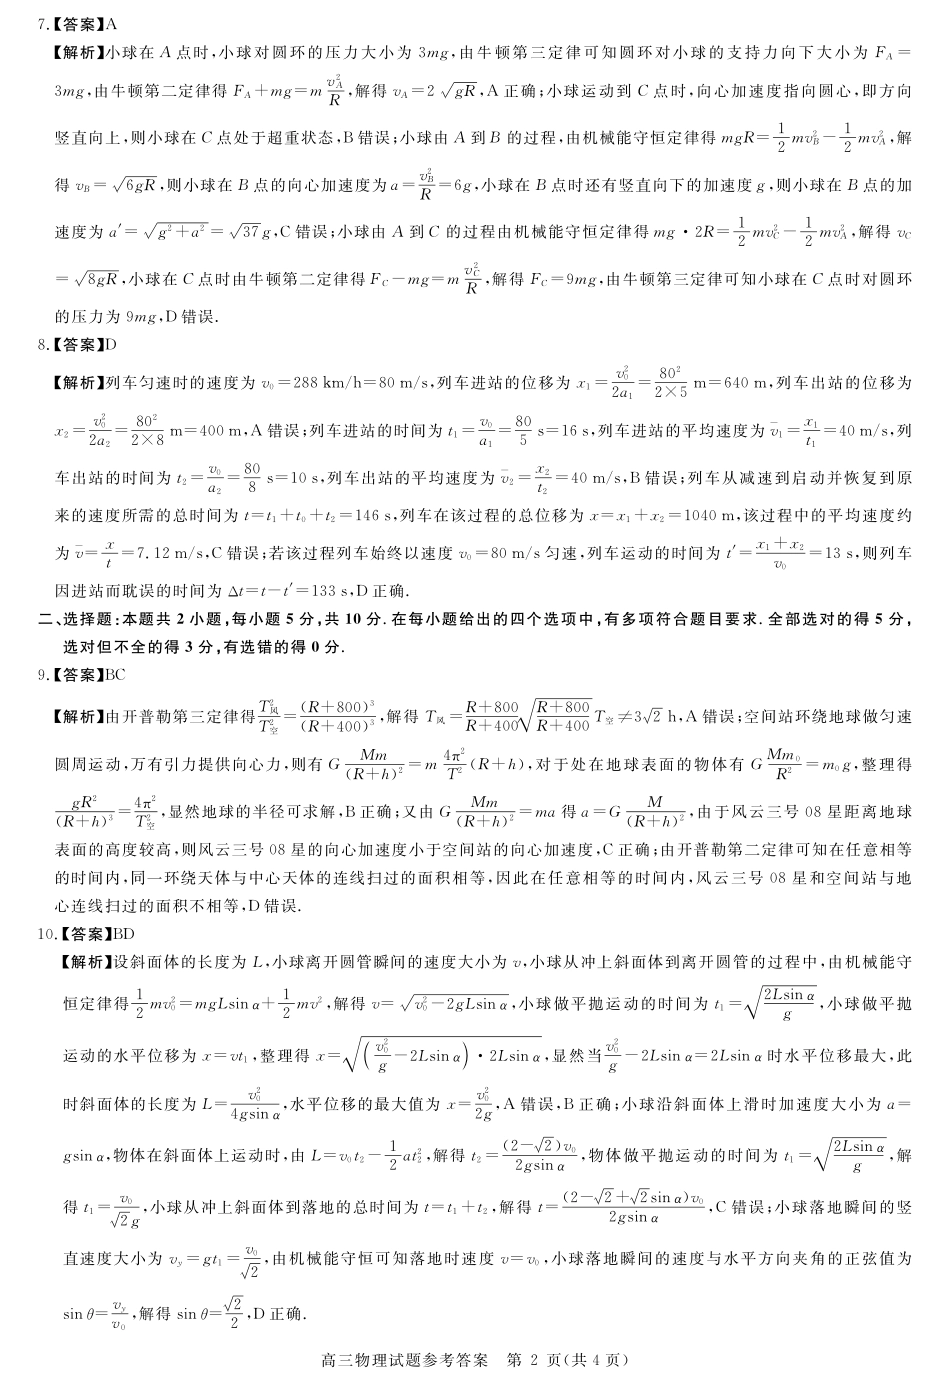 7.【答案】A
【解析】小球在 A 点时,小球对圆环的压力大小为 3mg,由牛顿第三定律可知圆环对小球的支持力向下大小为 F_A=
3mg,由牛顿第二定律得 F_A+mg=m v_A²/R,解得 v_A=2√(gR),A 正确;小球运动到 C 点时,向心加速度指向圆心,即方向
竖直向上,则小球在 C 点处于超重状态,B 错误;小球由 A 到 B 的过程,由机械能守恒定律得 mgR=1/2 mv_B²-1/2 mv_A²,解
得 v_B=√(6gR),则小球在 B 点的向心加速度为 a=v_B²/R=6g,小球在 B 点时还有竖直向下的加速度 g,则小球在 B 点的加
速度为 a′=√(g²+a²)=√37 g,C 错误;小球由 A 到 C 的过程由机械能守恒定律得 mg·2R=1/2 mv_C²-1/2 mv_A²,解得 v_C
=√(8gR),小球在 C 点时由牛顿第二定律得 F_C-mg=m v_C²/R,解得 F_C=9mg,由牛顿第三定律可知小球在 C 点时对圆环
的压力为 9mg,D 错误.
8.【答案】D
【解析】列车匀速时的速度为 v₀=288 km/h=80 m/s,列车进站的位移为 x₁=v₀²/2a₁=80²/2×5 m=640 m,列车出站的位移为
x₂=v₀²/2a₂=80²/2×8 m=400 m,A 错误;列车进站的时间为 t₁=v₀/a₁=80/5 s=16 s,列车进站的平均速度为 v̄₁=x₁/t₁=40 m/s,列
车出站的时间为 t₂=v₀/a₂=80/8 s=10 s,列车出站的平均速度为 v̄₂=x₂/t₂=40 m/s,B 错误;列车从减速到启动并恢复到原
来的速度所需的总时间为 t=t₁+t₀+t₂=146 s,列车在该过程的总位移为 x=x₁+x₂=1040 m,该过程中的平均速度约
为 v̄=x/t=7.12 m/s,C 错误;若该过程列车始终以速度 v₀=80 m/s 匀速,列车运动的时间为 t′=(x₁+x₂)/v₀=13 s,则列车
因进站而耽误的时间为 Δt=t-t′=133 s,D 正确.
二、选择题:本题共 2 小题,每小题 5 分,共 10 分.在每小题给出的四个选项中,有多项符合题目要求.全部选对的得 5 分,
选对但不全的得 3 分,有选错的得 0 分.
9.【答案】BC
【解析】由开普勒第三定律得 T_风²/T_空²=(R+800)³/(R+400)³,解得 T_风=(R+800)/(R+400)√((R+800)/(R+400)) T_空≠3√2 h,A 错误;空间站环绕地球做匀速
圆周运动,万有引力提供向心力,则有 G Mm/(R+h)²=m 4π²/T²(R+h),对于处在地球表面的物体有 G Mm₀/R²=m₀g,整理得
gR²/(R+h)³=4π²/T_空²,显然地球的半径可求解,B 正确;又由 G Mm/(R+h)²=ma 得 a=G M/(R+h)²,由于风云三号 08 星距离地球
表面的高度较高,则风云三号 08 星的向心加速度小于空间站的向心加速度,C 正确;由开普勒第二定律可知在任意相等
的时间内,同一环绕天体与中心天体的连线扫过的面积相等,因此在任意相等的时间内,风云三号 08 星和空间站与地
心连线扫过的面积不相等,D 错误.
10.【答案】BD
【解析】设斜面体的长度为 L,小球离开圆管瞬间的速度大小为 v,小球从冲上斜面体到离开圆管的过程中,由机械能守
恒定律得 1/2 mv₀²=mgLsin α+1/2 mv²,解得 v=√(v₀²-2gLsin α),小球做平抛运动的时间为 t₁=√(2Lsin α/g),小球做平抛
运动的水平位移为 x=vt₁,整理得 x=√((v₀²/g-2Lsin α)·2Lsin α),显然当 v₀²/g-2Lsin α=2Lsin α 时水平位移最大,此
时斜面体的长度为 L=v₀²/4gsin α,水平位移的最大值为 x=v₀²/2g,A 错误,B 正确;小球沿斜面体上滑时加速度大小为 a=
gsin α,物体在斜面体上运动时,由 L=v₀t₂-1/2 at₂²,解得 t₂=(2-√2)v₀/2gsin α,物体做平抛运动的时间为 t₁=√(2Lsin α/g),解
得 t₁=v₀/√2 g,小球从冲上斜面体到落地的总时间为 t=t₁+t₂,解得 t=(2-√2+√2sin α)v₀/2gsin α,C 错误;小球落地瞬间的竖
直速度大小为 v_y=gt₁=v₀/√2,由机械能守恒可知落地时速度 v=v₀,小球落地瞬间的速度与水平方向夹角的正弦值为
sin θ=v_y/v₀,解得 sin θ=√2/2,D 正确.
高三物理试题参考答案 第 2 页(共 4 页)